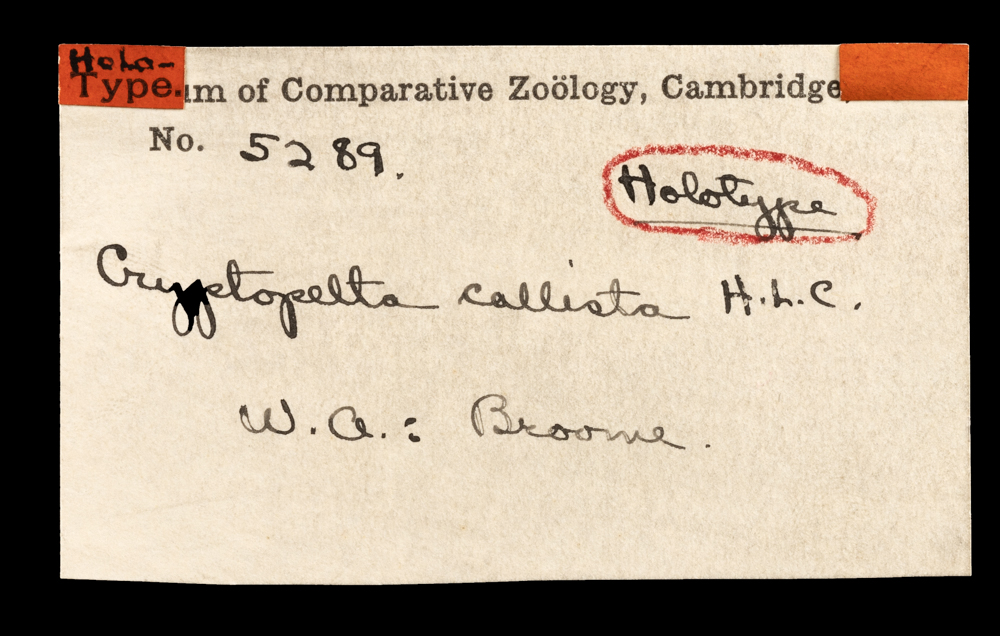 Holo-
Type.
um of Comparative Zoölogy, Cambridge,
No. 5289.
Holotype
Cryptopelta callista H.L.C.
W.A.: Broome.